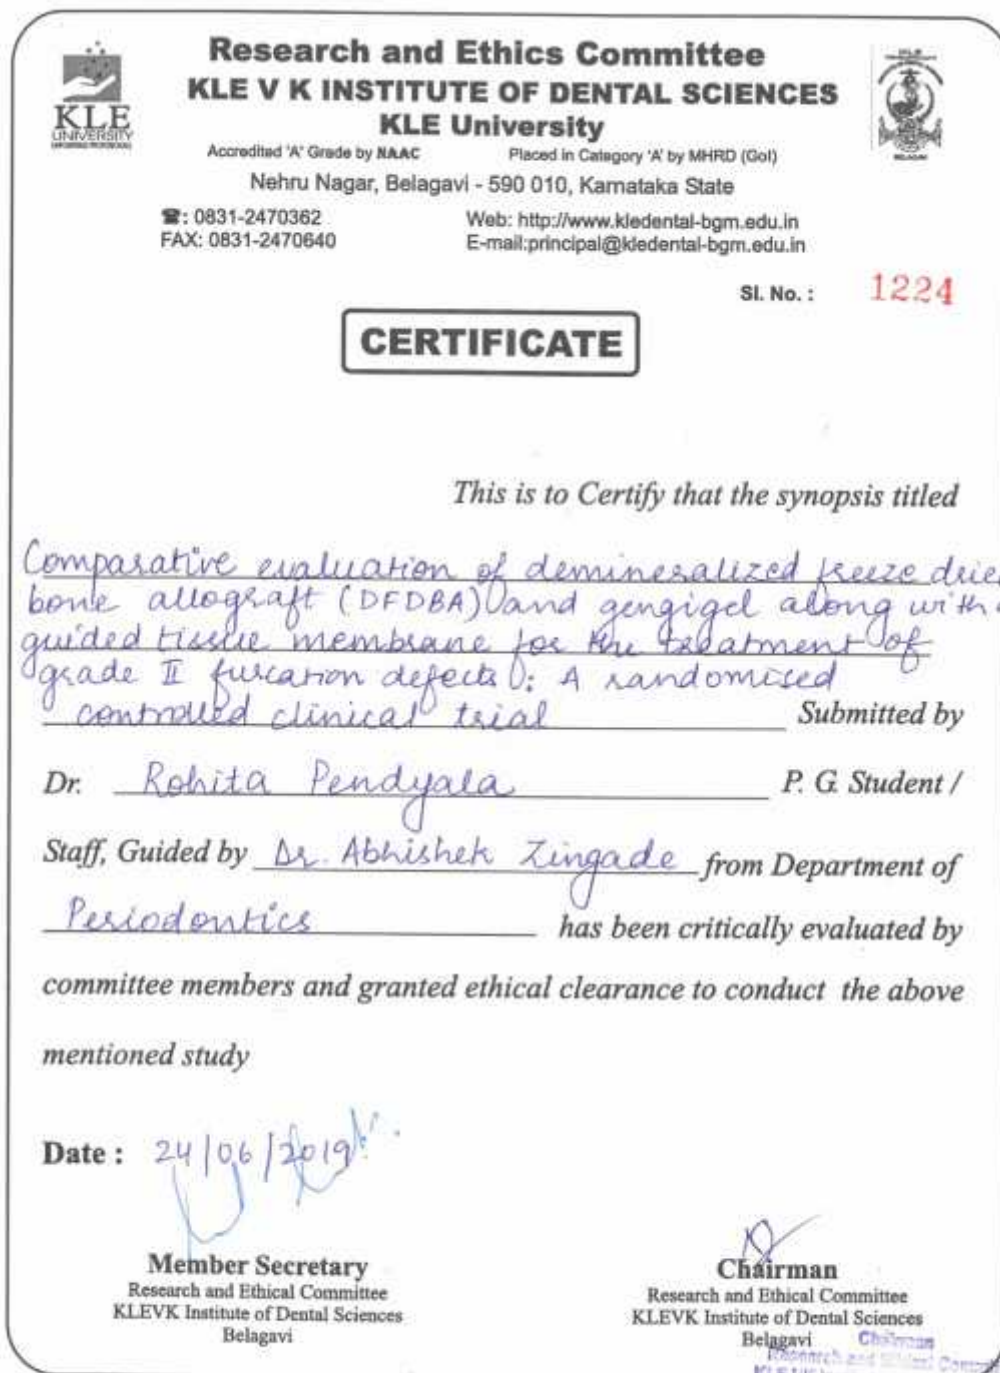 Research and Ethics Committee
KLE V K INSTITUTE OF DENTAL SCIENCES
KLE University
Accredited 'A' Grade by NAAC Placed in Category 'A' by MHRD (GoI)
Nehru Nagar, Belagavi - 590 010, Karnataka State
☎: 0831-2470362 Web: http://www.kledental-bgm.edu.in
FAX: 0831-2470640 E-mail:principal@kledental-bgm.edu.in
KLE
UNIVERSITY
BELAGAVI
Sl. No. : 1224
CERTIFICATE
This is to Certify that the synopsis titled
Comparative evaluation of demineralized freeze dried
bone allograft (DFDBA) and gengigel along with
guided tissue membrane for the treatment of
grade II furcation defects : A randomised
controlled clinical trial Submitted by
Dr. Rohita Pendyala P. G. Student /
Staff, Guided by Dr. Abhishek Zingade from Department of
Periodontics has been critically evaluated by
committee members and granted ethical clearance to conduct the above
mentioned study
Date : 24/06/2019
Member Secretary
Research and Ethical Committee
KLEVK Institute of Dental Sciences
Belagavi
Chairman
Research and Ethical Committee
KLEVK Institute of Dental Sciences
Belagavi
Chairman